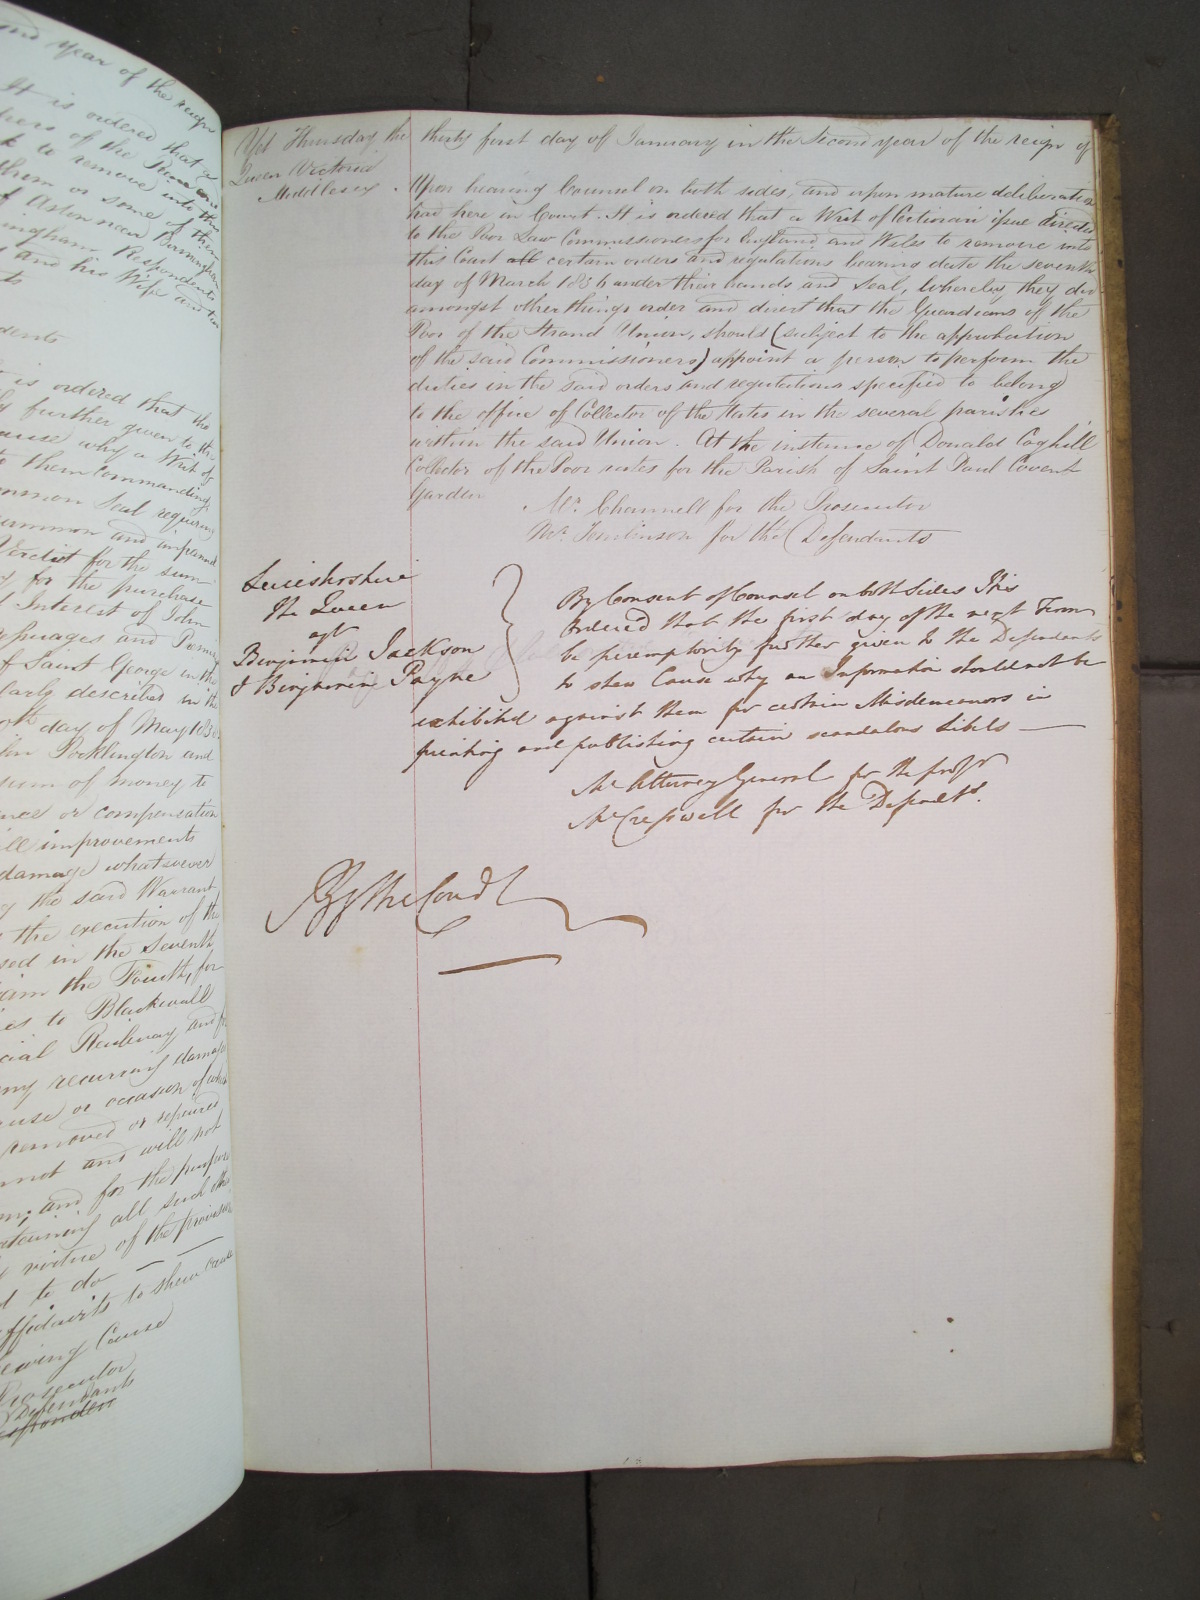 and year of the reign
It is ordered that a
k to remove into th
them or some of them
of Aston near Birmingham
ingham Respondents
and his Wife and
ents
is ordered that the
further given to th
ause why a Writ of
to them Commanding
ommon Seal requiring
ummon and impannel
Verdict for the sum
for the purchase
Interest of John
of Saint George in the
larly described in the
day of May 183
sum of money to
nce or compensation
ill improvements
damage whatsoever
the said Warrant
the execution of the
sed in the Seventh
iam the Fourth, for
to Blackwall
cial Railway and
any recurring damage
ause or occasion of
removed or repaired
not and will not
and for the purpose
all such
virtue of the provisions
to do —
ffidavits to shew cause
ewing Cause
Prosecutor
Defendants
Yet Thursday the thirty first day of January in the Second year of the reign of
Queen Victoria
Middlesex . Upon hearing Counsel on both sides, and upon mature deliberation
had here in Court. It is ordered that a Writ of Certiorari issue directed
to the Poor Law Commissioners for England and Wales to remove into
this Court all certain orders and regulations bearing date the seventh
day of March 1836 under their hands and Seal, whereby they did
amongst other things order and direct that the Guardians of the
Poor of the Strand Union, should (subject to the approbation
of the said Commissioners) appoint a person to perform the
duties in the said orders and regulations specified to belong
to the office of Collector of the Rates in the several parishes
within the said Union. At the instance of Donald Coghill
Collector of the Poor rates for the Parish of Saint Paul Covent
Garden
Mr. Channell for the Prosecutor
Mr. Tomlinson for the Defendants
Leicestershire
The Queen
agt
Benjamin Jackson
& Benjamin Payne
By Consent of Counsel on both Sides It is
Ordered that the first day of the next Term
be peremptorily further given to the Defendants
to shew Cause why an Information should not be
exhibited against them for certain Misdemeanors in
printing and publishing certain scandalous Libels —
Mr Attorney General for the prosr
Mr Cresswell for the Defendts.
By the Court